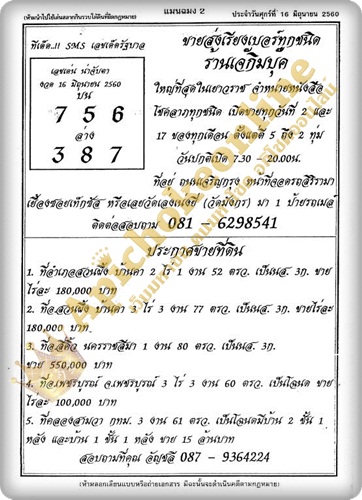 แมนฉมง 2
(ห้ามนำไปใช้เล่นสลากกินรวบได้ผิดกฎหมาย)
ประจำวันศุกร์ที่ 16 มิถุนายน 2560
ทีเด็ด..!! SMS เลขเด็ดรัฐบาล
เลขเด่น น่าจับตา
งวด 16 มิถุนายน 2560
บน
7 5 6
ล่าง
3 8 7
ขายส่งเรียงเบอร์ทุกชนิด
ร้านเจ๊กิมบุ๊ค
ใหญ่ที่สุดในเยาวราช จำหน่ายหนังสือ
โชคลาภทุกชนิด เปิดขายทุกวันที่ 2 และ
17 ของทุกเดือน ตั้งแต่ตี 5 ถึง 2 ทุ่ม
วันปกติเปิด 7.30 - 20.00น.
ที่อยู่ ถนนเจริญกรุง หน้าที่จอดรถสิริรามา
เยื้องซอยเท็กซัส หรือเลยวัดเล่งเน่ยยี่ (วัดมังกร) มา 1 ป้ายรถเมล์
ติดต่อสอบถาม 081 - 6298541
ประกาศขายที่ดิน
1. ที่อำเภอสวนผึ้ง บ้านคา 2 ไร่ 1 งาน 52 ตรว. เป็นนส. 3ก. ขาย
ไร่ละ 180,000 บาท
2. ที่อ.สวนผึ้ง บ้านคา 3 ไร่ 3 งาน 77 ตรว. เป็นนส. 3ก. ขายไร่ละ
180,000 บาท
3. ที่อ.สีคิ้ว นครราชสีมา 1 งาน 80 ตรว. เป็นนส. 3ก.
ขาย 550,000 บาท
4. ที่อ.เพชรบูรณ์ จ.เพชรบูรณ์ 3 ไร่ 3 งาน 60 ตรว. เป็นโฉนด ขาย
ไร่ละ 100,000 บาท
5. ที่คลองสามวา กทม. 3 งาน 61 ตรว. เป็นโฉนดมีบ้าน 2 ชั้น 1
หลัง และบ้าน 1 ชั้น 1 หลัง ขาย 15 ล้านบาท
สอบถามที่คุณ อัญชลี 087 - 9364224
(ห้ามลอกเลียนแบบหรือถ่ายเอกสาร มิฉะนั้นจะดำเนินคดีตามกฎหมาย)
Apichokeonline